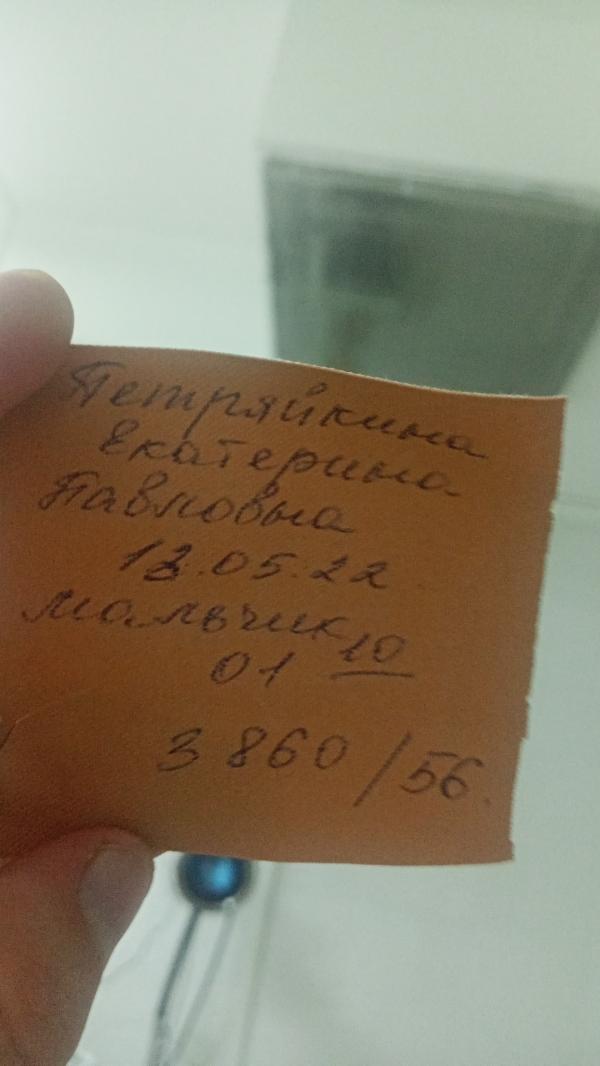 Петряйкина
Екатерина
Павловна
13.05.22
мальчик
01 10
3 860/56.